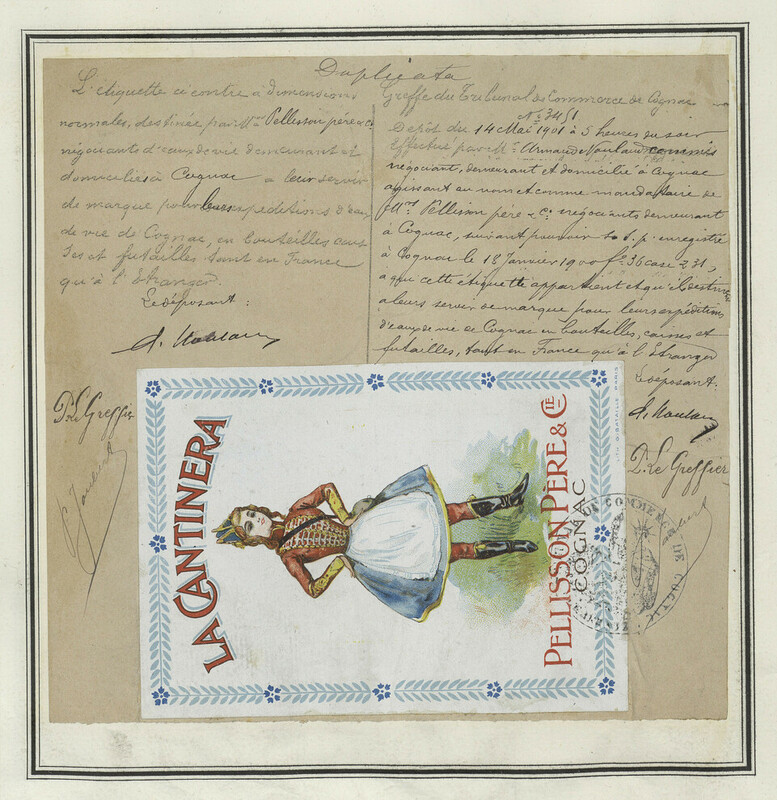 Duplicata
L'étiquette ci contre à dimensions
normales, destinée par MM. Pellisson père & Cie
négociants d'eaux de vie demeurant et
domiciliés à Cognac a leur servir
de marque pour leurs expéditions d'eaux
de vie de Cognac, en bouteilles cais
ses et futailles tant en France
qu'à l'Etranger.
Le déposant :
A. Naulaud
P. Le Greffier
Greffe du Tribunal de Commerce de Cognac
No 3451
Dépôt du 14 Mai 1901 à 5 heures du soir
Effectué par Mr. Armand Naulaud commis
négociant, demeurant et domicilié à Cognac
agissant au nom et comme mandataire de
MMrs Pellisson père & Cie négociants demeurant
à Cognac, suivant pouvoir s. s. p. enregistré
à Cognac le 18 Janvier 1900 fo 36 case 231,
a qui cette étiquette appartient et qu'ils destinent
a leurs servir de marque pour leurs expéditions
d'eaux de vie de Cognac en bouteilles, caisses et
futailles, tant en France qu'à l'Etranger
Le déposant.
A. Naulaud
P. Le Greffier
LA CANTINERA
PELLISSON PÈRE & CIE
COGNAC
DE COMMERCE DE COGNAC